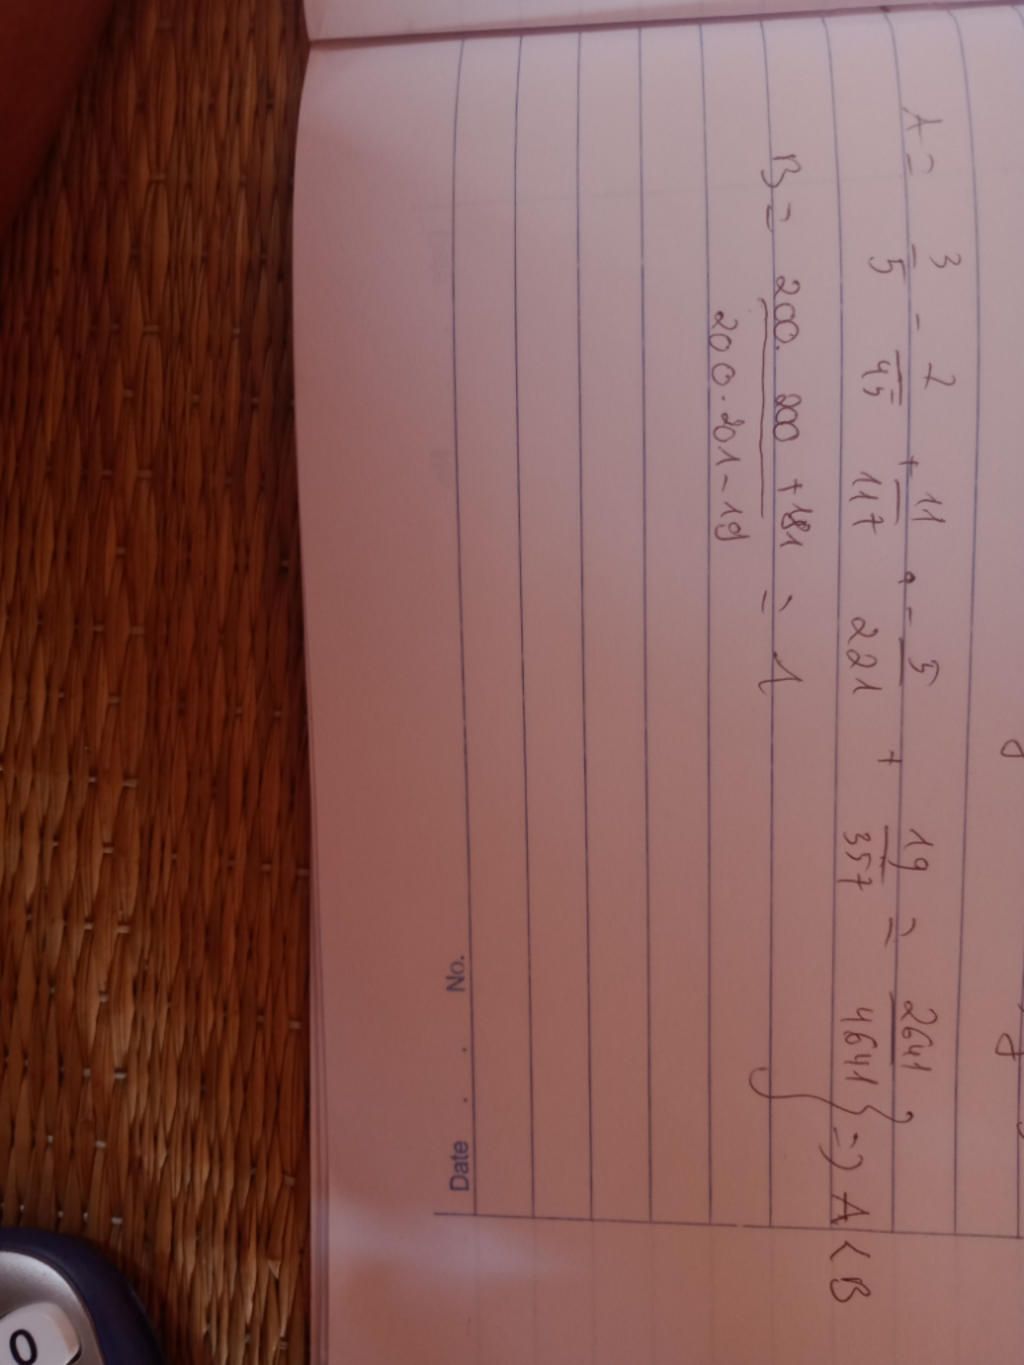 A = 3/5 - 2/45 + 11/117 - 5/221 + 19/357 = 2641/4641
B = 200.200+181/200.201-19 = 1
} => A < B
Date . . No.
0